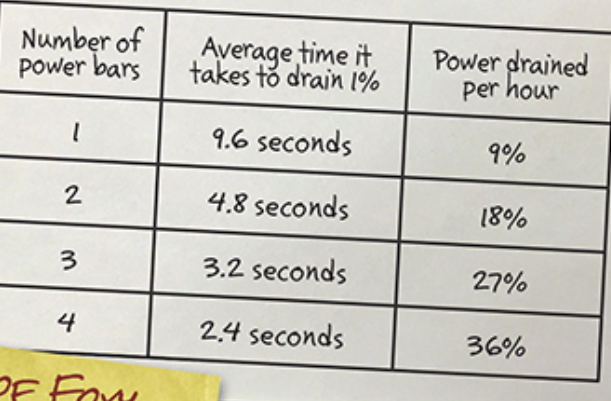 Number of
power bars
Average time it
takes to drain 1%
Power drained
per hour
1
9.6 seconds
9%
2
4.8 seconds
18%
3
3.2 seconds
27%
4
2.4 seconds
36%